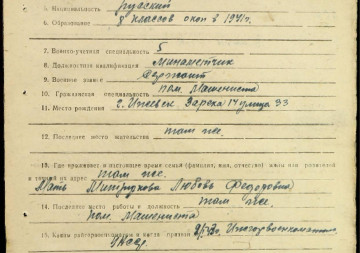 5. Национальность русский
6. Образование 8 классов окон в 1941г.
7. Военно-учетная специальность 5
8. Должностная квалификация Минаметчик
9. Военное звание Сержант
10. Гражданская специальность пом. Машениста
11. Место рождения г. Ижевск. Зарека 14 улица 33
12. Последнее место жительства там же.
13. Где проживает в настоящее время семья (фамилия, имя, отчество) жены или родителей
и точный их адрес там же.
Мать Любовь Федоровна
14. Последнее место работы и должность там же
пом. Машениста
15. Каким райгорвоенкоматом и когда призван
УАССР.